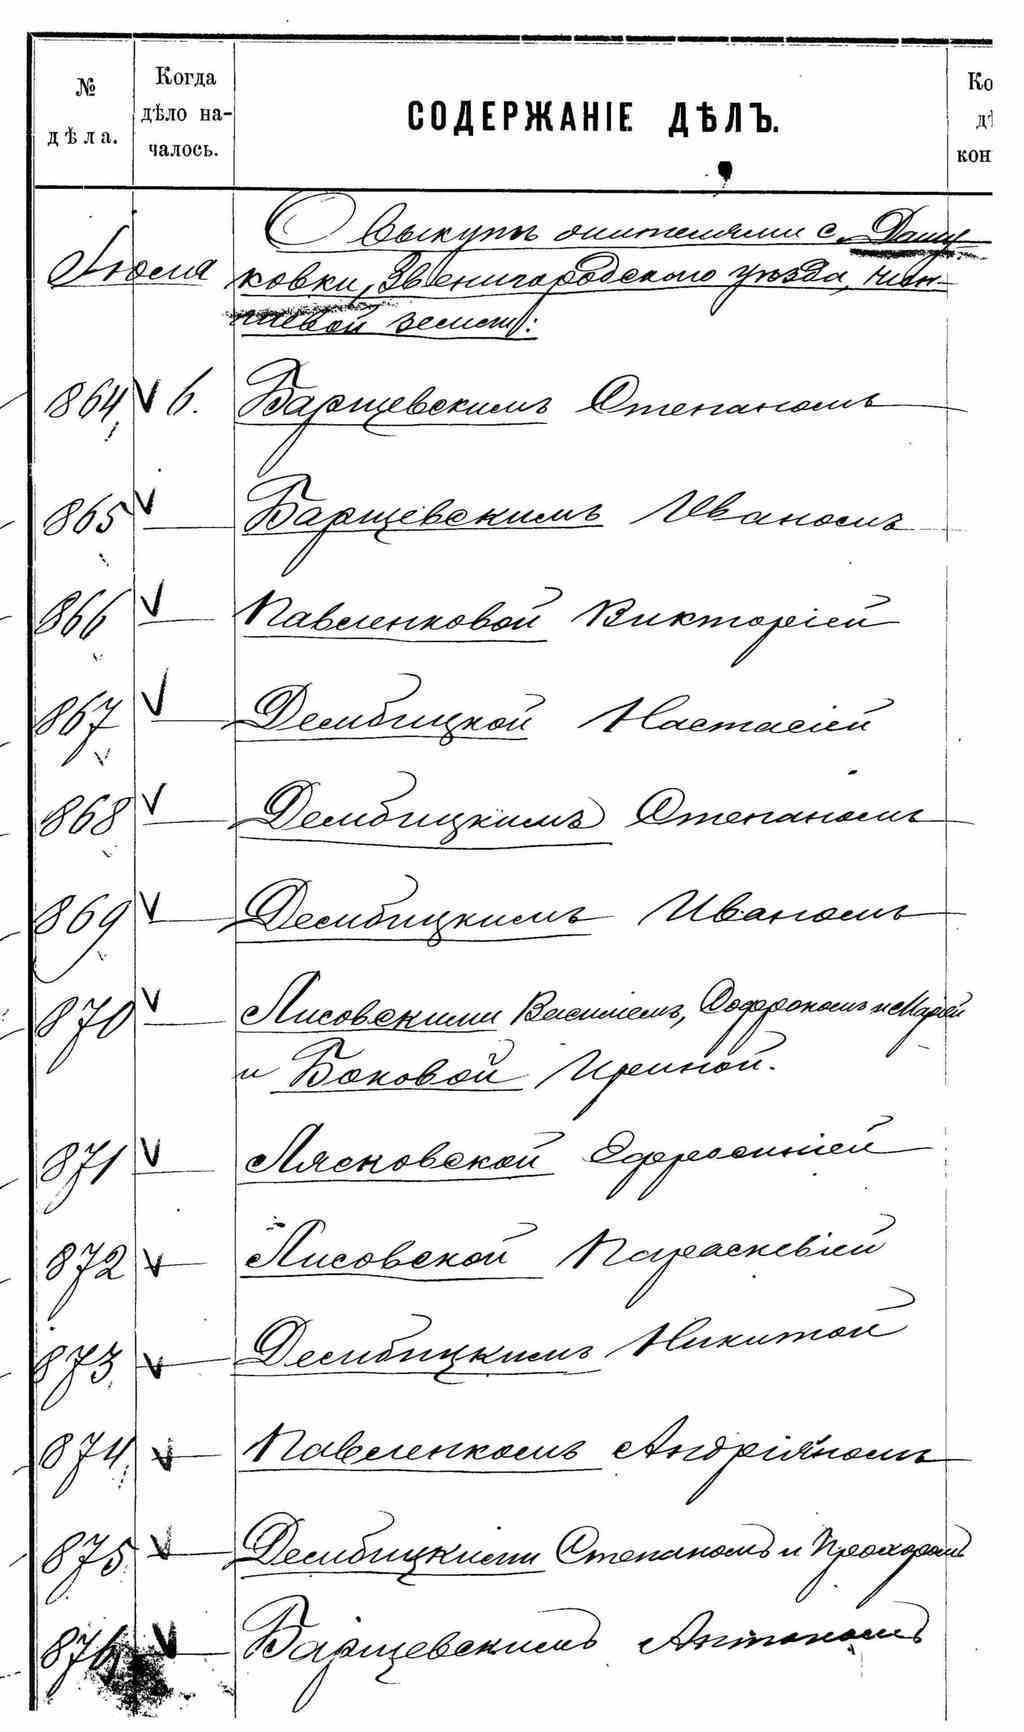 № дѣла.
Когда дѣло на-
чалось.
СОДЕРЖАНІЕ ДѢЛЪ.
Ко
дѣ
кон
Іюля
О выкупѣ жителями с. Дашу-
ковки, Звенигородскаго уѣзда, чин-
шевой земли:
864 V 6. Барщевскимъ Степаномъ
865 V — Барщевскимъ Иваномъ
866 V — Павленковой Викторіей
867 V — Дембицкой Настасіей
868 V — Дембицкимъ Степаномъ
869 V — Дембицкимъ Иваномъ
870 V — Лисовскими Василіемъ, Софрономъ и Маріей
и Боковой Ириной.
871 V — Лясковской Ефросиніей
872 V Лисовской Параскевіей
873 V — Дембицкимъ Никитой
874 V — Павленкомъ Андріяномъ
875 V — Дембицкими Степаномъ и Прохоромъ
876 V — Барщевскимъ Антономъ